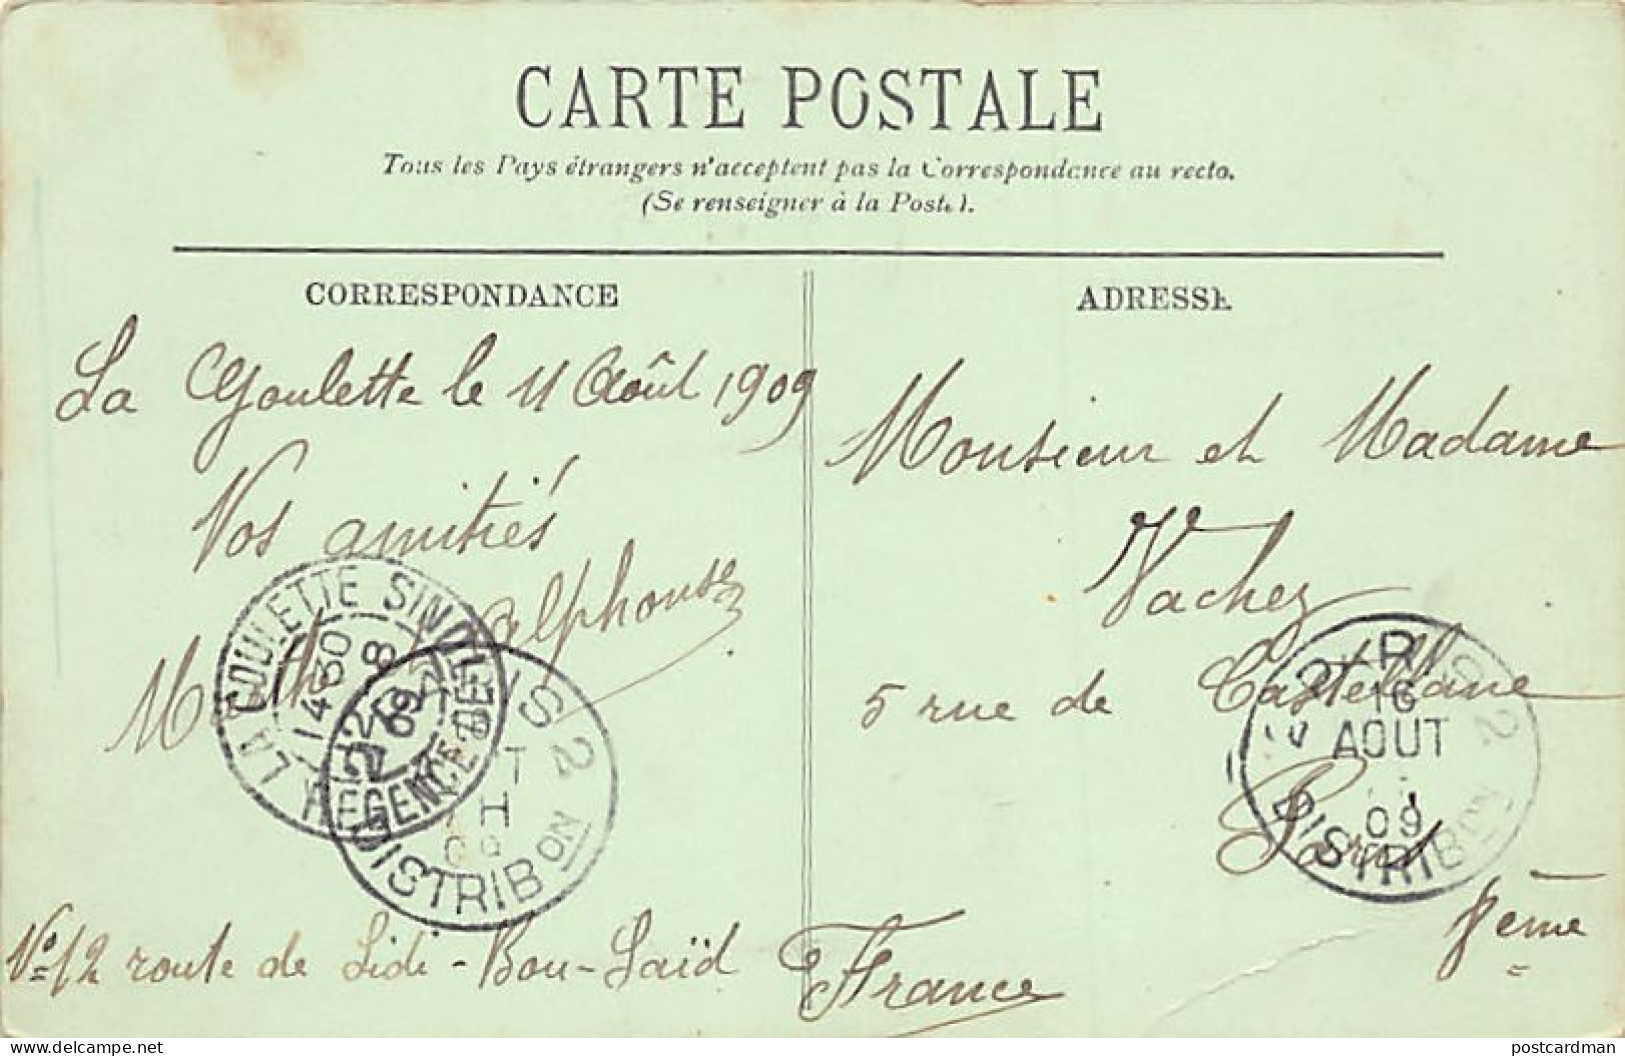 CARTE POSTALE
Tous les Pays étrangers n'acceptent pas la Correspondance au recto.
(Se renseigner à la Poste).
CORRESPONDANCE
La Goulette le 11 Août 1909
Vos amitiés
Alphonse
LA GOULETTE SINDJEL
14 30
8
09
REGENCE DE
S 2
DISTRIB ON
No 12 route de Sidi-Bou-Saïd
ADRESSE
Monsieur et Madame
Vachez
5 rue de Castellane
Paris
8eme
France
16
AOUT
09
DISTRIB ON
postcardman